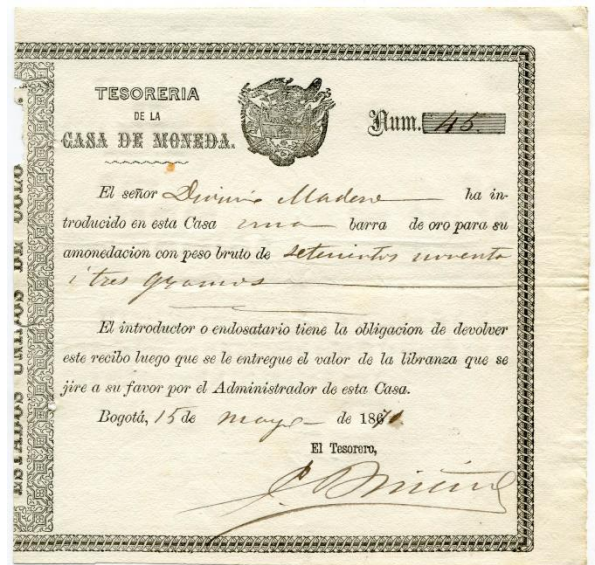 TESORERIA
DE LA
CASA DE MONEDA.
Num. 45.
El señor Madero ha in-
troducido en esta Casa una barra de oro para su
amonedacion con peso bruto de setecientos noventa
i tres gramos
El introductor o endosatario tiene la obligacion de devolver
este recibo luego que se le entregue el valor de la libranza que se
jire a su favor por el Administrador de esta Casa.
Bogotá, 15 de mayo de 1871.
El Tesorero,
ESTADOS UNIDOS DE COLO